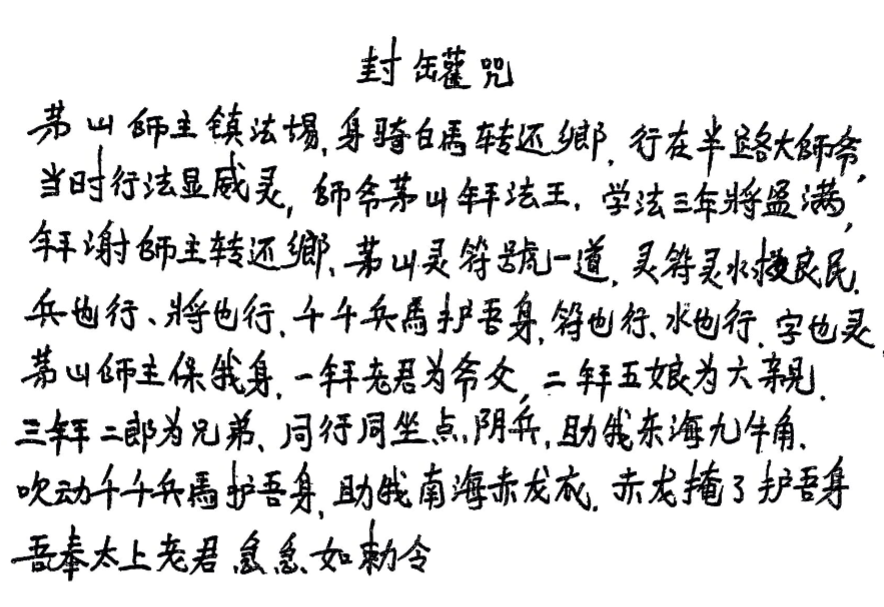 封罐咒
茅山師主镇法場,身骑白馬转还鄉,行在半路大師爷,
当时行法显威灵,師爷茅山拜法王.学法三年將盈满,
拜谢師主转还鄉、茅山灵符號一道,灵符灵水救良民.
兵也行、將也行.千千兵馬护吾身,符也行、水也行,字也灵,
茅山師主保我身.一拜老君为爷父,二拜五娘为六親.
三拜二郎为兄弟、同行同坐点阴兵,助我东海九牛角.
吹动千千兵馬护吾身,助我南海赤龙衣.赤龙掩了护吾身
吾奉太上老君急急如勅令